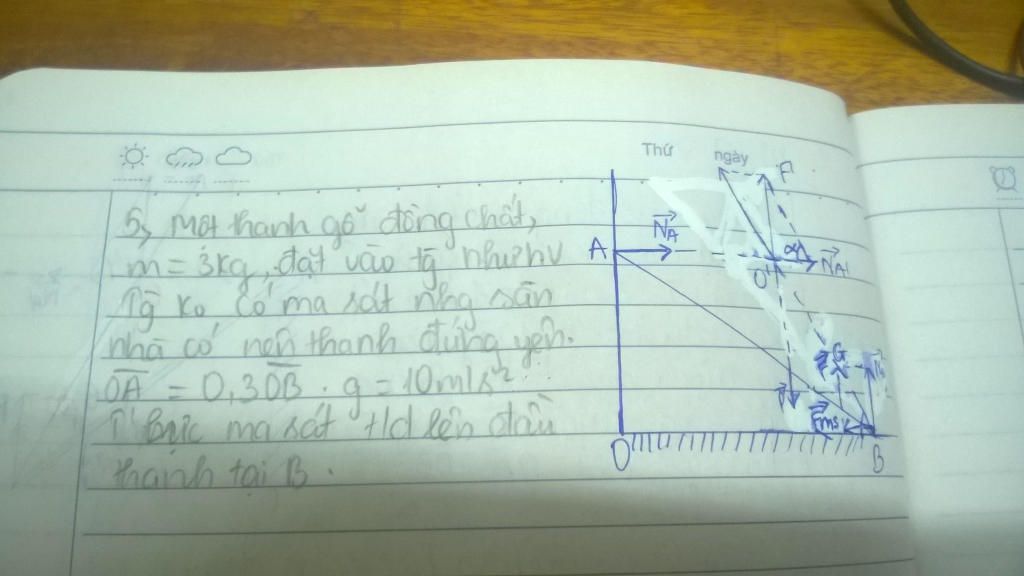 Thứ ngày
5, Một thanh gỗ đồng chất,
m = 3kg, đặt vào tg như hv
Tg ko có ma sát nhg sàn
nhà có nên thanh đứng yên.
OA = 0,3OB. g = 10m/s²
lực ma sát t/d lên đầu
thanh tại B.
F
N_A
A
α
N_A'
O'
G
P
F_ms
O
B